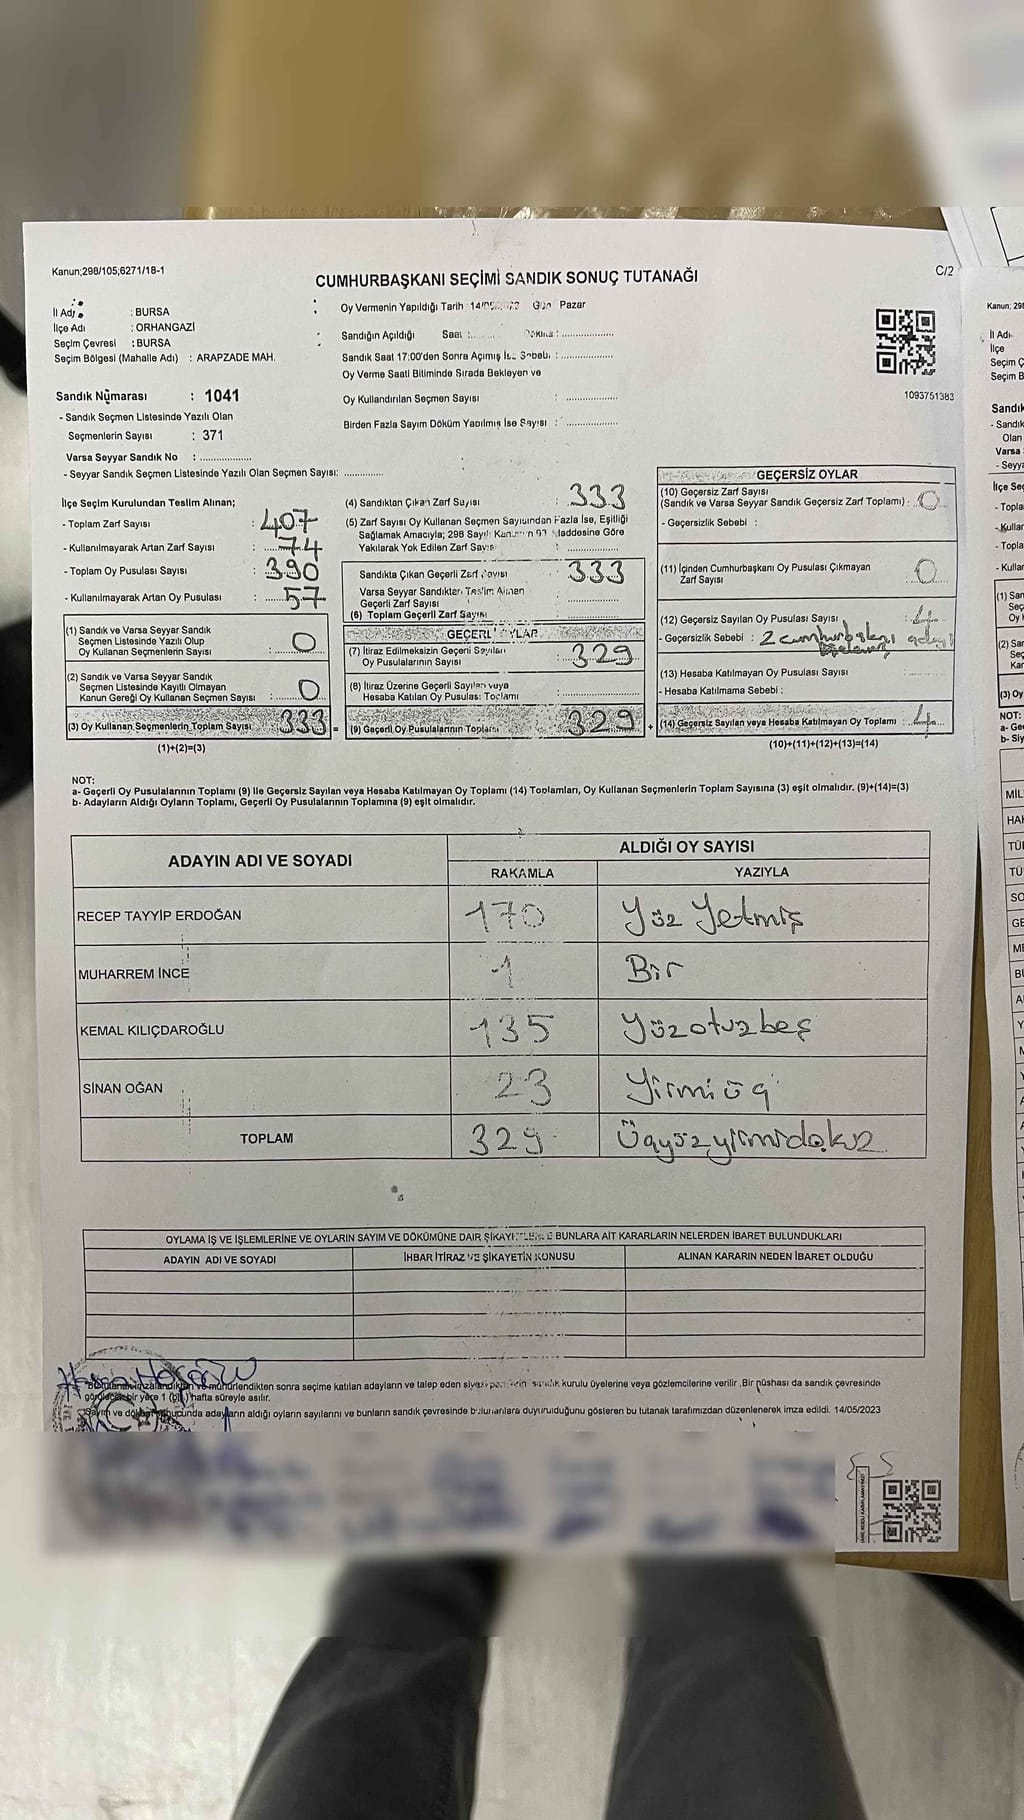 Kanun;298/105;6271/18-1
C/2
CUMHURBAŞKANI SEÇİMİ SANDIK SONUÇ TUTANAĞI
İl Adı : BURSA
İlçe Adı : ORHANGAZİ
Seçim Çevresi : BURSA
Seçim Bölgesi (Mahalle Adı) : ARAPZADE MAH.
Sandık Numarası : 1041
- Sandık Seçmen Listesinde Yazılı Olan
Seçmenlerin Sayısı : 371
Varsa Seyyar Sandık No : ..................
- Seyyar Sandık Seçmen Listesinde Yazılı Olan Seçmen Sayısı: .............
Oy Vermenin Yapıldığı Tarih Gün Pazar
Sandığın Açıldığı Saat
Sandık Saat 17:00'den Sonra Açımış
Oy Verme Saati Bitiminde Sırada Bekleyen ve
Oy Kullandırılan Seçmen Sayısı : .................
Birden Fazla Sayım Döküm Yapılmış İse Sayısı : .................
1093751383
İlçe Seçim Kurulundan Teslim Alınan;
- Toplam Zarf Sayısı : 407
- Kullanılmayarak Artan Zarf Sayısı : 74
- Toplam Oy Pusulası Sayısı : 390
- Kullanılmayarak Artan Oy Pusulası : 57
(1) Sandık ve Varsa Seyyar Sandık
Seçmen Listesinde Yazılı Olup
Oy Kullanan Seçmenlerin Sayısı : 0
(2) Sandık ve Varsa Seyyar Sandık
Seçmen Listesinde Kayıtlı Olmayan
Kanun Gereği Oy Kullanan Seçmen Sayısı : 0
(3) Oy Kullanan Seçmenlerin Toplam Sayısı 333 =
(1)+(2)=(3)
(4) Sandıktan Çıkan Zarf Sayısı : 333
(5) Zarf Sayısı Oy Kullanan Seçmen Sayısından Fazla İse, Eşitliği
Sağlamak Amacıyla; 298 Sayılı Maddesine Göre
Yakılarak Yok Edilen Zarf Sayısı
Sandıkta Çıkan Geçerli Zarf Sayısı 333
Varsa Seyyar Sandıktan Teslim Alınan
Geçerli Zarf Sayısı
(6) Toplam Geçerli Zarf Sayısı
GEÇERLİ OYLAR
(7) İtiraz Edilmeksizin Geçerli Sayılan
Oy Pusulalarının Sayısı : 329
(8) İtiraz Üzerine Geçerli Sayılan veya
Hesaba Katılan Oy Pusulası Toplamı
(9) Geçerli Oy Pusulalarının Toplamı 329 +
GEÇERSİZ OYLAR
(10) Geçersiz Zarf Sayısı
(Sandık ve Varsa Seyyar Sandık Geçersiz Zarf Toplamı) : 0
- Geçersizlik Sebebi :
(11) İçinden Cumhurbaşkanı Oy Pusulası Çıkmayan
Zarf Sayısı : 0
(12) Geçersiz Sayılan Oy Pusulası Sayısı : 4
- Geçersizlik Sebebi : 2 cumhurbaşkanı
(13) Hesaba Katılmayan Oy Pusulası Sayısı
- Hesaba Katılmama Sebebi :
(14) Geçersiz Sayılan veya Hesaba Katılmayan Oy Toplamı : 4
(10)+(11)+(12)+(13)=(14)
NOT:
a- Geçerli Oy Pusulalarının Toplamı (9) İle Geçersiz Sayılan veya Hesaba Katılmayan Oy (14) Toplamları, Oy Kullanan Seçmenlerin Toplam Sayısına (3) eşit olmalıdır. (9)+(14)=(3)
b- Adayların Aldığı Oyların Toplamı, Geçerli Oy Pusulalarının Toplamına (9) eşit olmalıdır.
ADAYIN ADI VE SOYADI
ALDIĞI OY SAYISI
RAKAMLA YAZIYLA
RECEP TAYYİP ERDOĞAN 170 Yüz Yetmiş
MUHARREM İNCE 1 Bir
KEMAL KILIÇDAROĞLU 135 Yüzotuzbeş
SİNAN OĞAN 23 Yirmiüç
TOPLAM 329 Üçyüzyirmidokuz
OYLAMA İŞ VE İŞLEMLERİNE VE OYLARIN SAYIM VE DÖKÜMÜNE DAİR BUNLARA AİT KARARLARIN NELERDEN İBARET BULUNDUKLARI
ADAYIN ADI VE SOYADI İHBAR İTİRAZ VE ŞİKAYETİN KONUSU ALINAN KARARIN NEDEN İBARET OLDUĞU
mühürlendikten sonra seçime katılan adayların ve talep eden kurulu üyelerine veya gözlemcilerine verilir. Bir nüshası da sandık çevresinde
bir yere 1 (bir) hafta süreyle asılır.
Sayım ve adayların aldığı oyların sayılarını ve bunların sandık çevresinde bulunanlara duyurulduğunu gösteren bu tutanak tarafımızdan düzenlenerek imza edildi. 14/05/2023